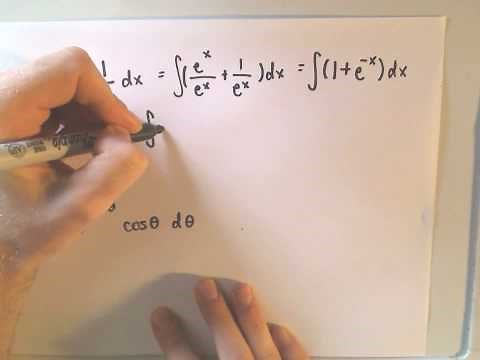 1/ dx = ∫(e^x/e^x + 1/e^x)dx = ∫(1+e^-x)dx
∫
cosθ dθ